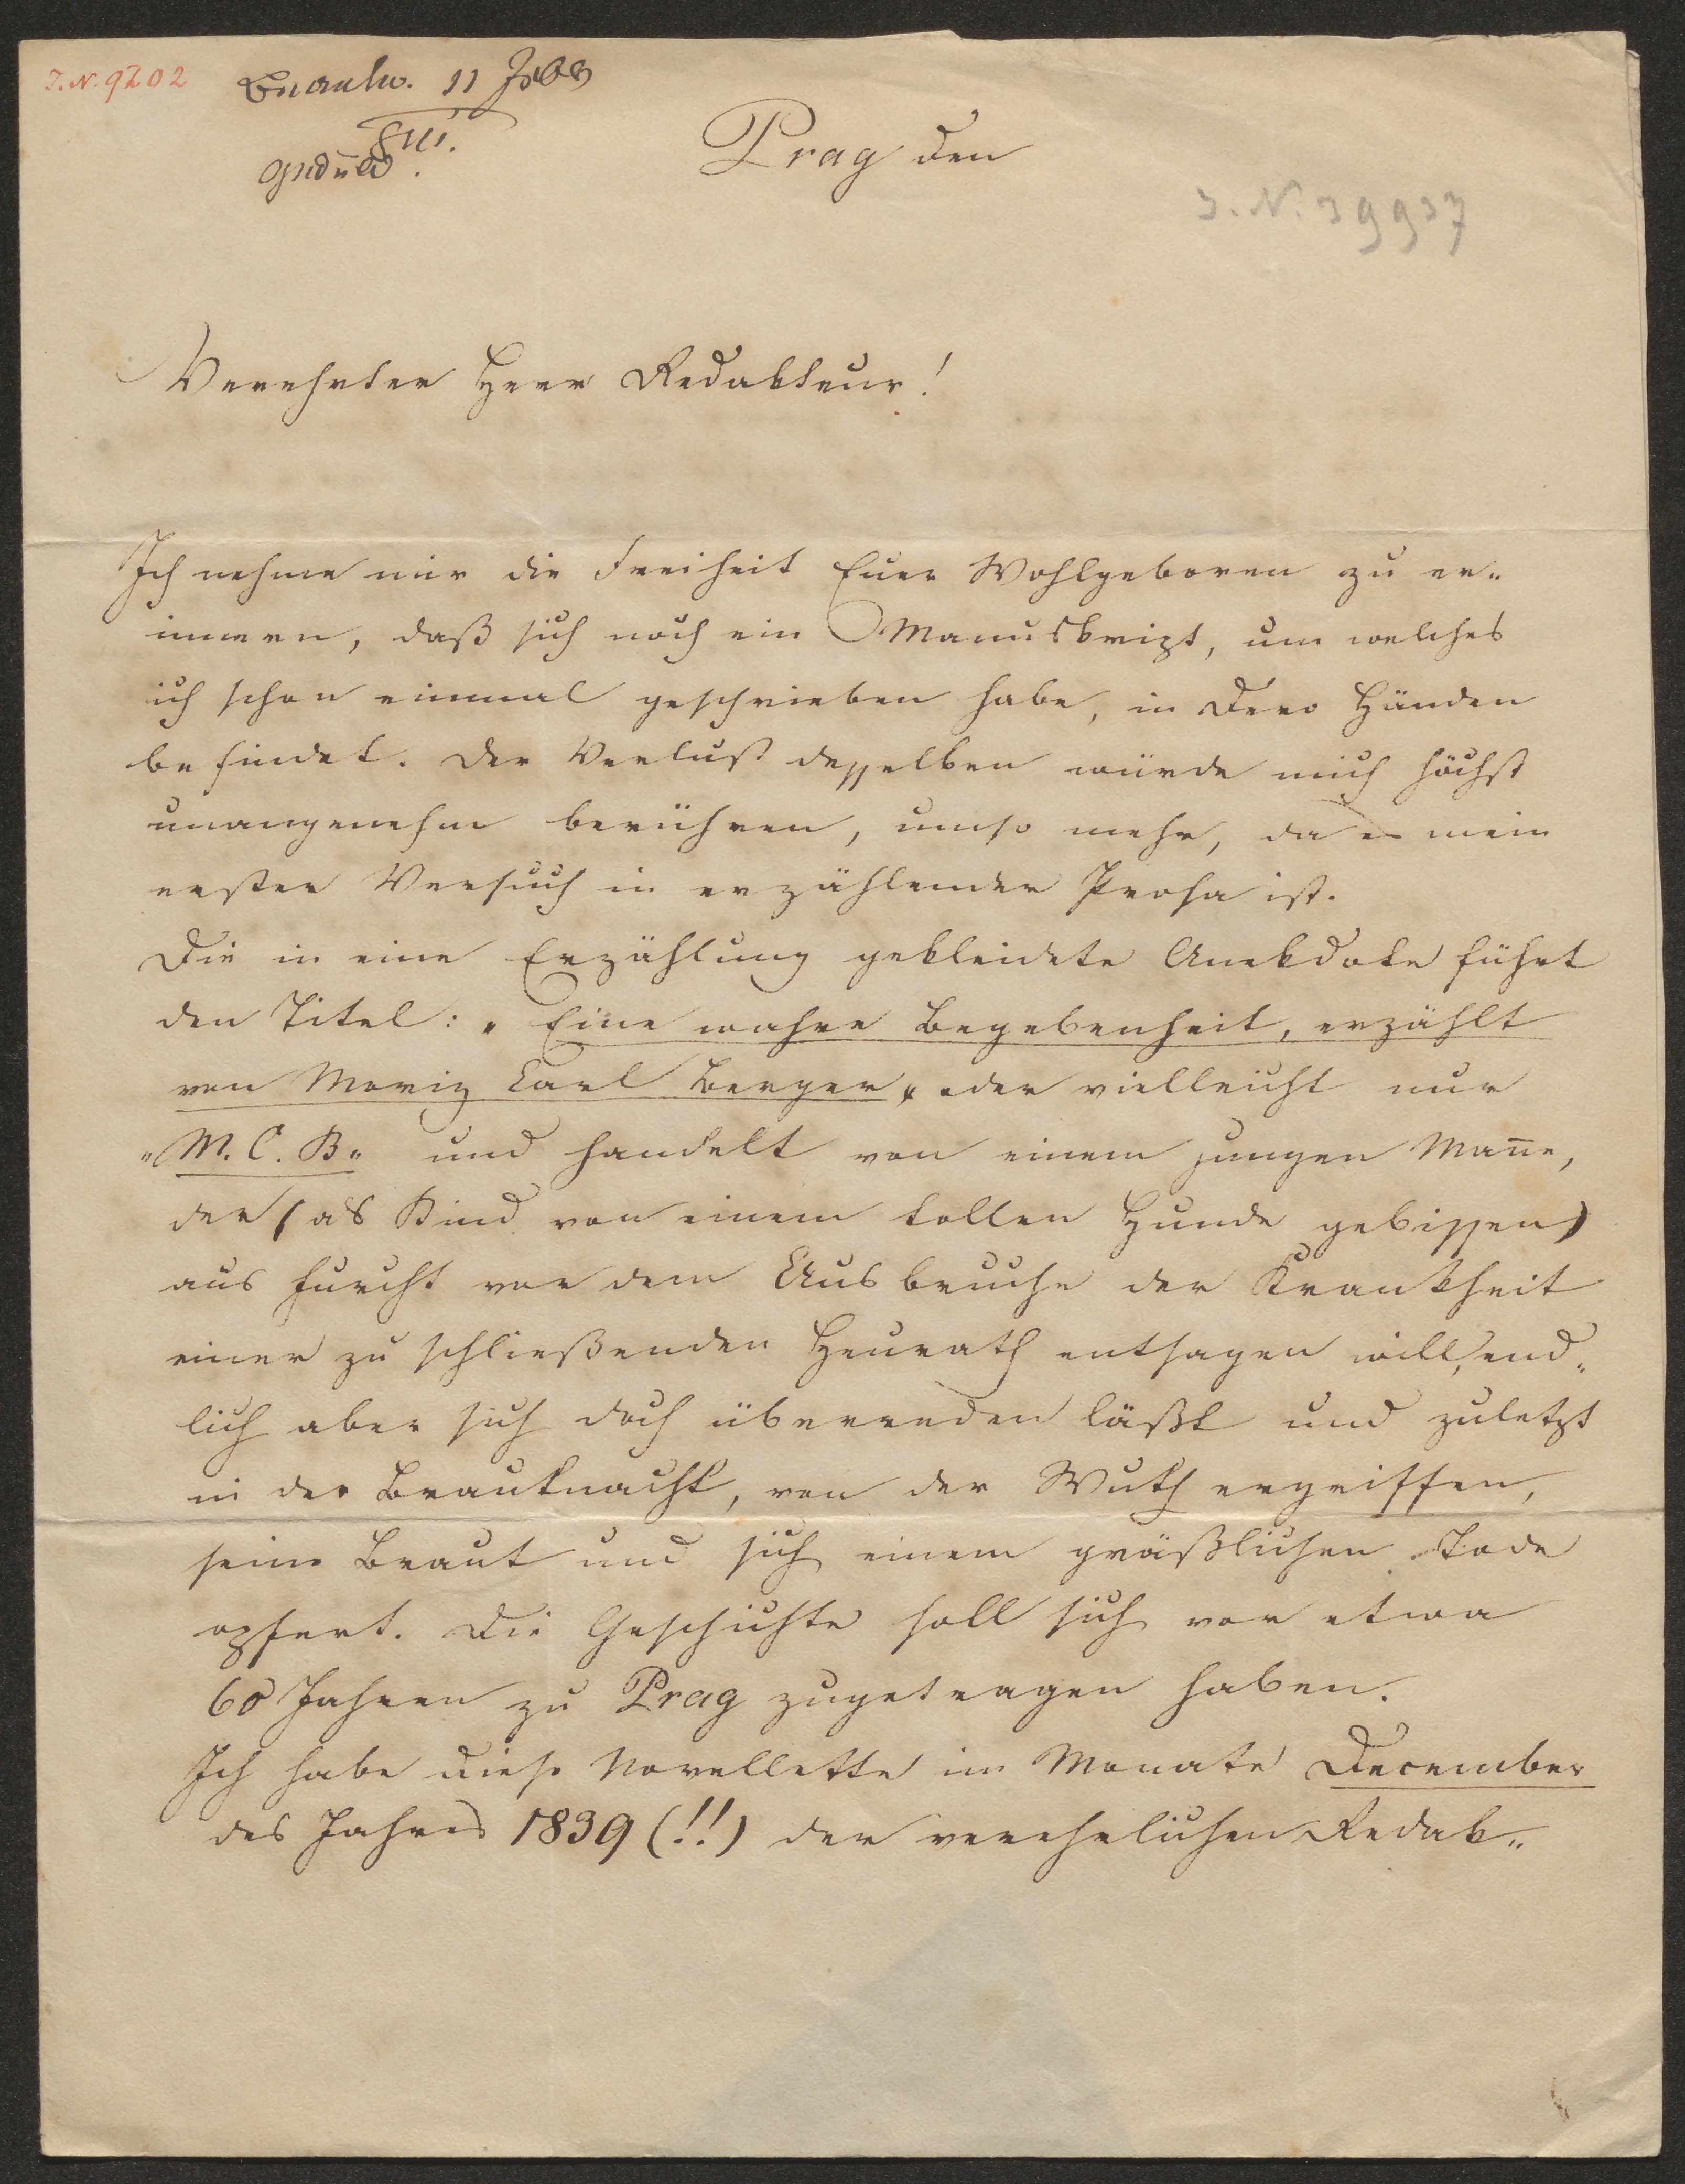 J. N. 9202
Prag den
J. N. 39937
Verehrter Herr Redakteur!
Ich nehme mir die Freiheit Euer Wohlgeboren zu er„
innern, daß sich noch ein Manuskript, um welches
ich schon einmal geschrieben habe, in Dero Händen
befindet. Der Verlust desselben würde mich höchst
unangenehm berühren, umso mehr, da es mein
erster Versuch in erzählender Prosa ist.
Die in eine Erzählung gekleidete Anekdote führt
den Titel: „Eine wahre Begebenheit, erzählt
von Moriz Carl Berger„ oder vielleicht nur
„M. C. B„ und handelt von einem jungen Man̅e,
der (als Kind von einem tollen Hunde gebissen)
aus Furcht vor dem Ausbruche der Krankheit
einer zu schließenden Heurath entsagen will, end„
lich aber sich doch überreden läßt und zuletzt
in der Brautnacht, von der Wuth ergriffen,
seine Braut und sich einem gräßlichen Tode
opfert. Die Geschichte soll sich vor etwa
60 Jahren zu Prag zugetragen haben.
Ich habe diese Novellette im Monate December
des Jahres 1839 (!!) der verehrlichen Redak„